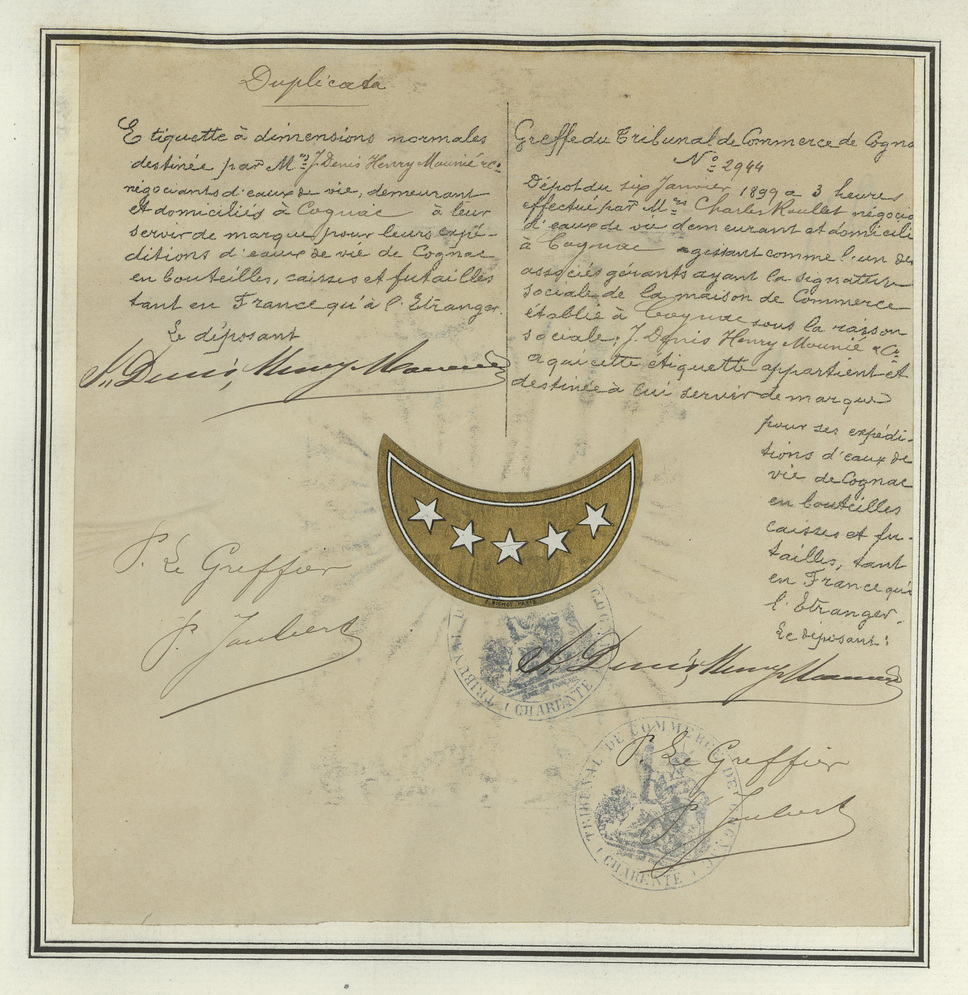 Duplicata
Etiquette à dimensions normales
destinée par M.rs J. Denis Henry Mounié & Co.
négociants d'eaux de vie, demeurant
et domiciliés à Cognac à leur
servir de marque pour leurs expé-
ditions d'eaux de vie de Cognac
en bouteilles, caisses et futailles
tant en France qu'à l'Etranger.
Le déposant
J. Denis, Henry Mounié
P. Le Greffier
P. Joubert
Greffe du Tribunal de Commerce de Cogna
No. 2944
Dépôt du six Janvier 1899 a 3 heures
effectué par M. Charles Roullet négocia
d'eaux de vie demeurant et domicili
à Cognac agissant comme l'un des
associés gérants ayant la signature
sociale de la maison de Commerce
établie à Cognac sous la raison
sociale; J. Denis Henry Mounié & Co.
a qui cette étiquette appartient et
destinée à lui servir de marque
pour ses expédi-
tions d'eaux de
vie de Cognac
en bouteilles
caisses et fu-
tailles, tant
en France qu'à
l'Etranger.
Le déposant:
J. Denis, Henry Mounié
P. Le Greffier
P. Joubert
TRIBUNAL D
CHARENTE
TRIBUNAL DE COMMERCE DE COGNAC
CHARENTE